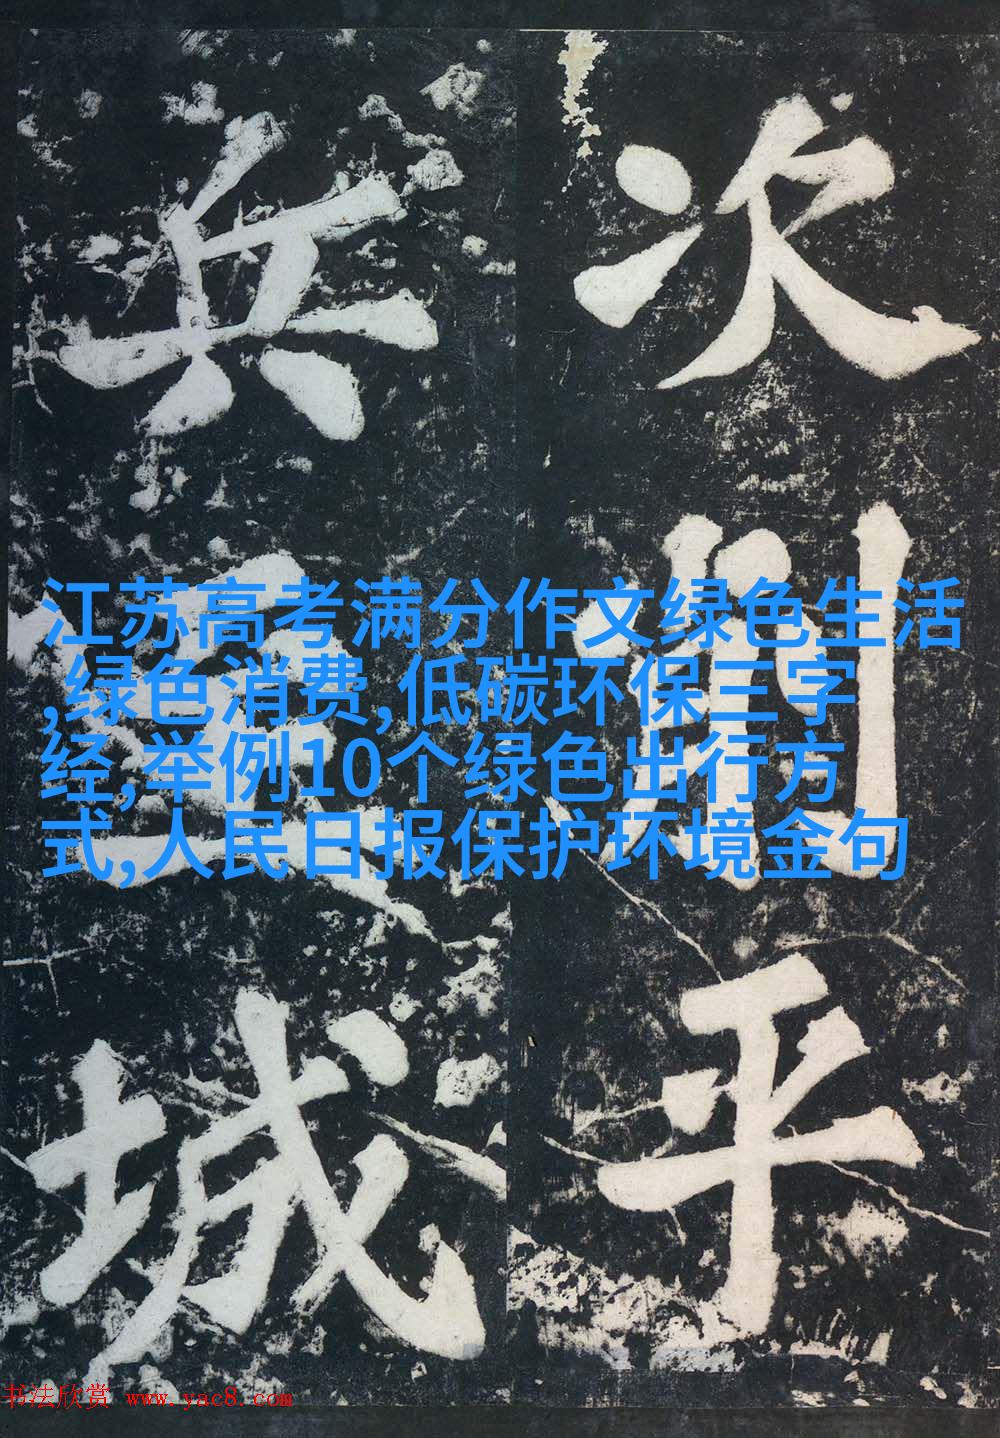 次州平
兵至城
江苏高考满分作文绿色生活
,绿色消费,低碳环保三字
经,举例10个绿色出行方
式,人民日报保护环境金句
书法欣赏 www.yac8.com